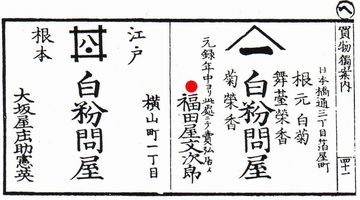 買物獨案内
四十一
日本橋通三丁目箔屋町
根元白菊
舞臺榮香
菊榮香
白粉問屋
元録年中ヨリ此處ニテ賣弘居候
福田屋文次郎
江戸
根本
白粉問屋
横山町一丁目
大坂屋庄助憲英